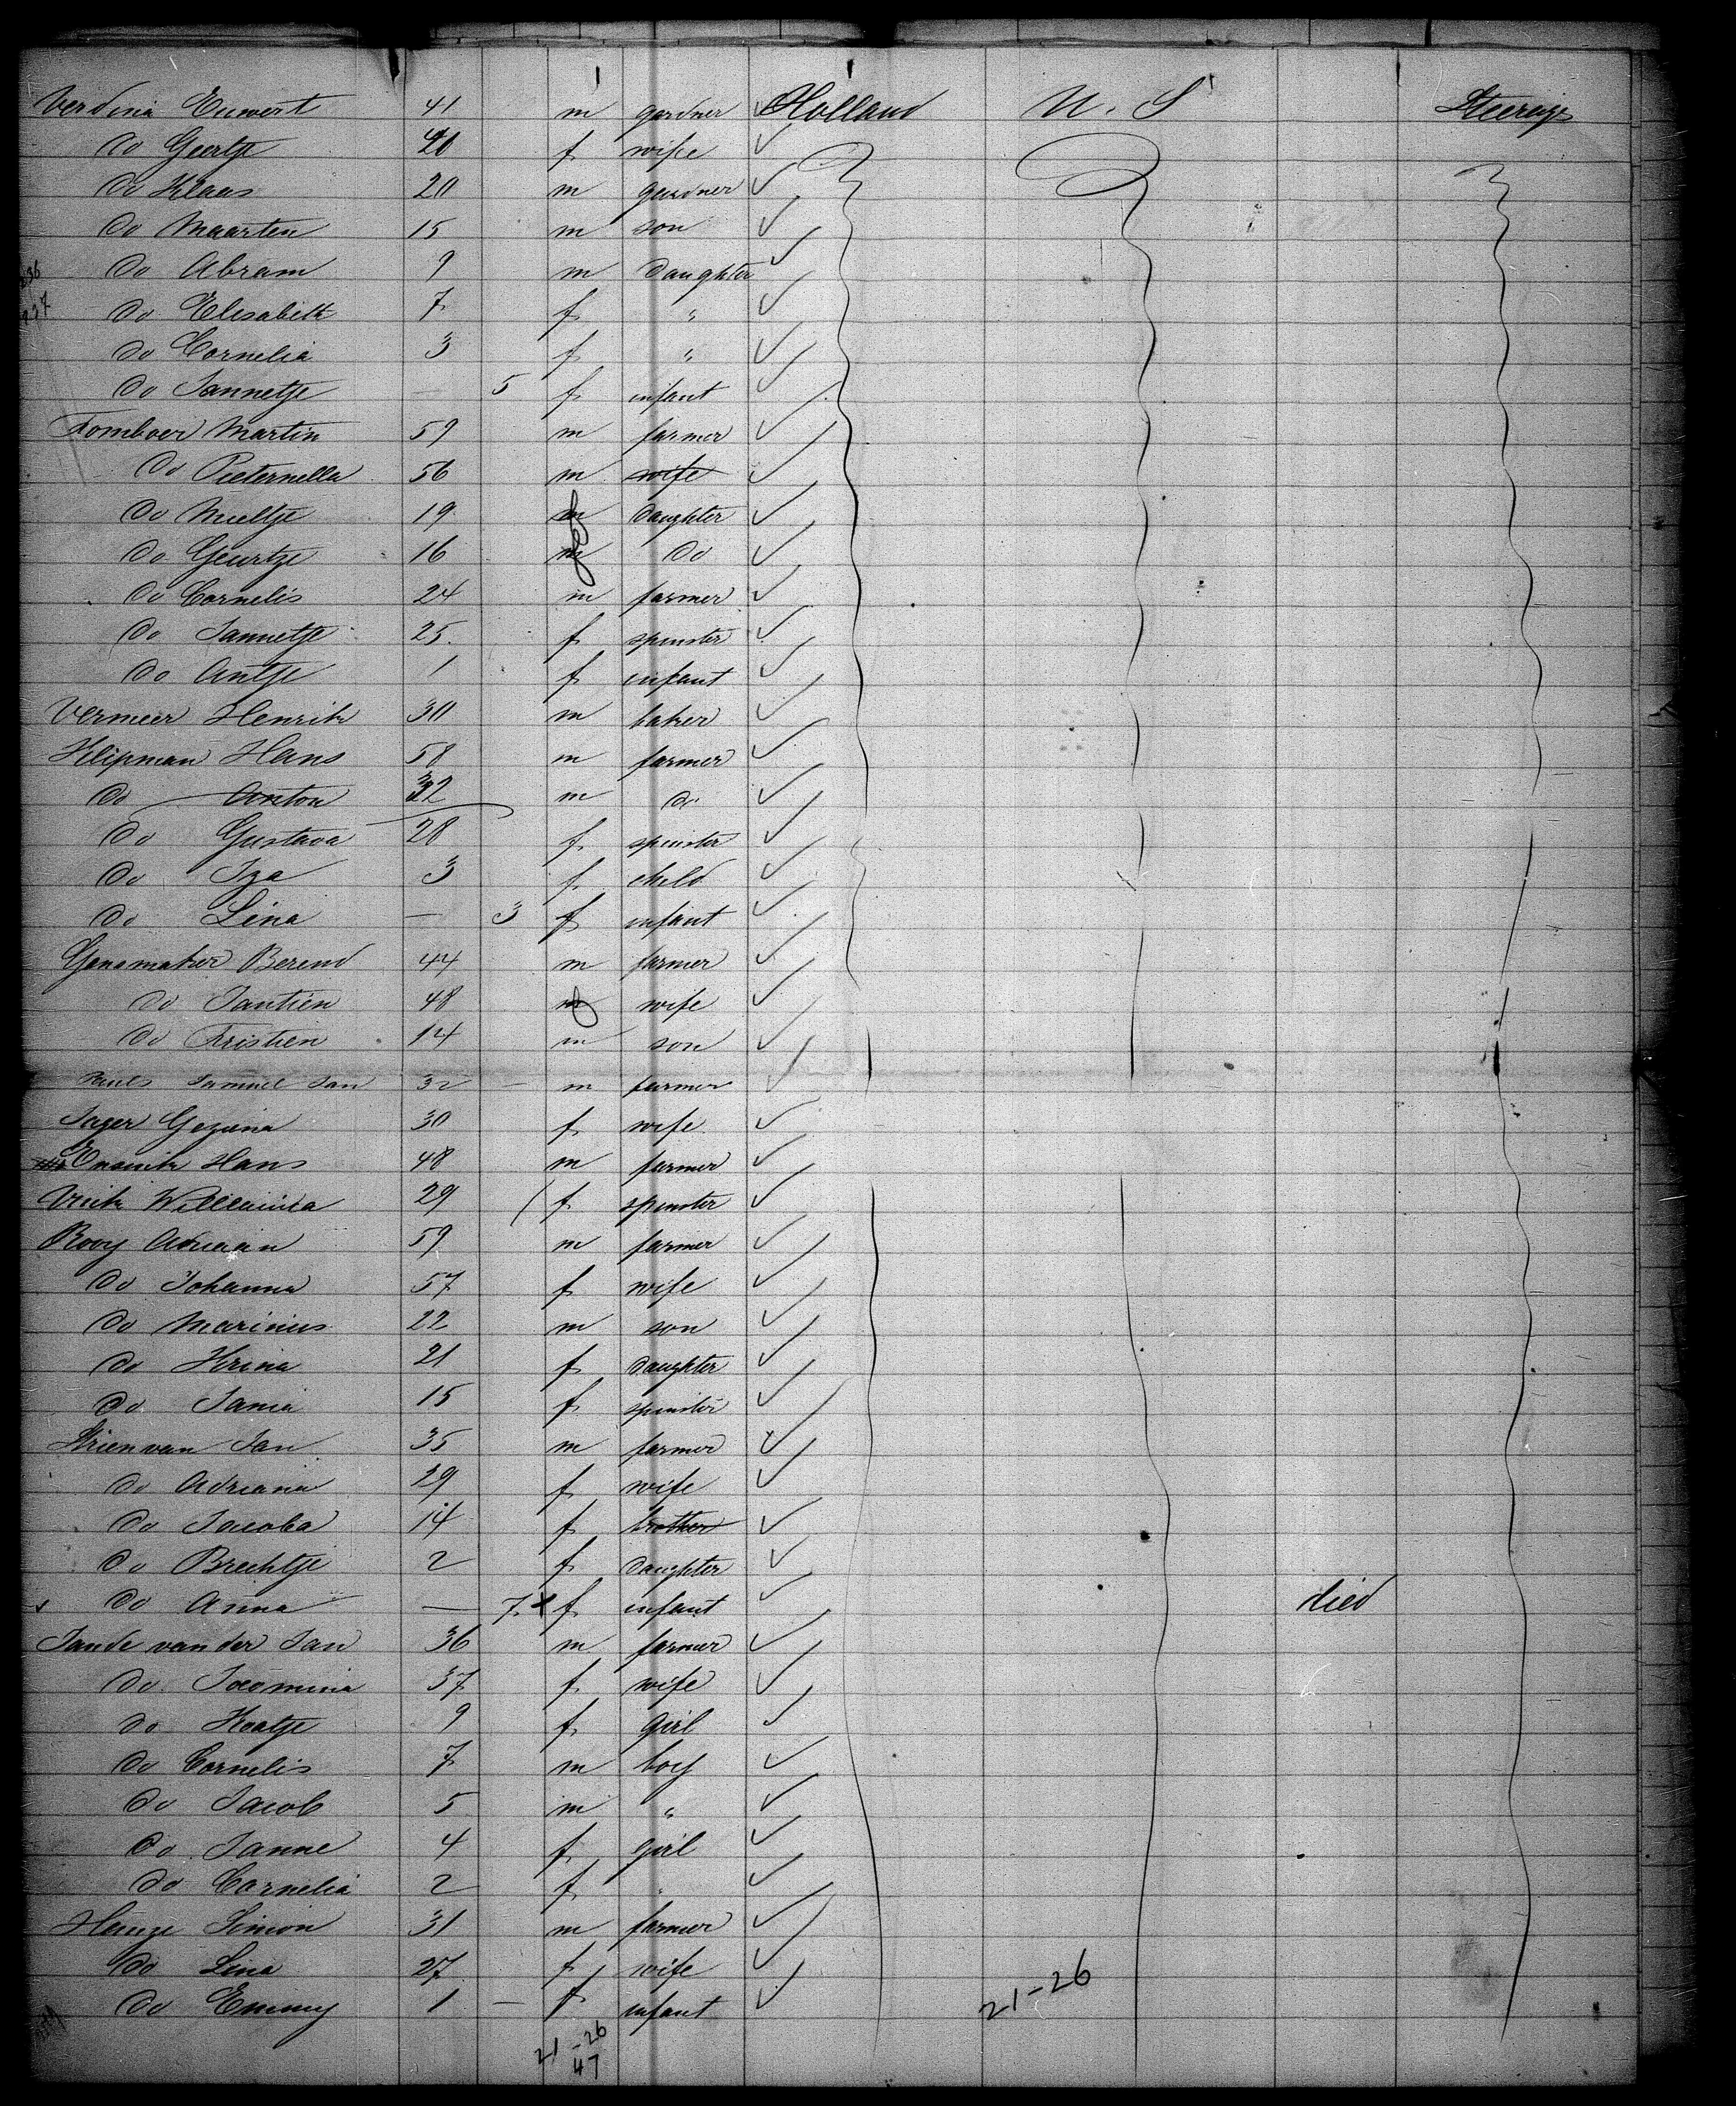 Verdina Euwert 41 m gardner Holland U. S Steerage
Do Geertje 40 f wife
Do Klaas 20 m gardner
Do Maarten 15 m son
Do Abram 9 m Daughter
Do Elisabeth 7 f "
Do Cornelia 3 f "
Do Jannetje — 5 f infant
Tomboer Martin 59 m farmer
Do Pieternella 56 m wife
Do Meeltje 19 f Daughter
Do Geurtze 16 f Do
Do Cornelis 24 m farmer
Do Jannetje 25 f spinster
Do Antje 1 f infant
Vermeer Henrik 30 m baker
Klipman Hans 58 m farmer
Do Anton 32 m Do
Do Gustava 28 f spinster
Do Iza 3 f child
Do Lina — 3 f infant
Gansmaker Berend 44 m farmer
Do Jantien 48 f wife
Do Kristien 14 m son
Samuel Jan 32 — m farmer
Jager Gezina 30 f wife
Ensink Hans 48 m farmer
Vrik Willemina 29 f spinster
Rooy Adriaan 59 m farmer
Do Johanna 57 f wife
Do Marinus 22 m son
Do Krina 21 f Daughter
Do Jania 15 f spinster
Strien van Jan 35 m farmer
Do Adriana 29 f wife
Do Jacoba 14 f brother
Do Brechtje 2 f Daughter
Do Anna — 7 x f infant died
Jande van der Jan 36 m farmer
Do Jacomina 37 f wife
Do Kaatje 9 f Girl
Do Cornelis 7 m boy
Do Jacob 5 m "
Do Janne 4 f girl
Do Cornelia 2 f "
Henze Simon 31 m farmer
Do Lina 27 f wife
Do Emmy 1 — f infant
21-26
21-26
47